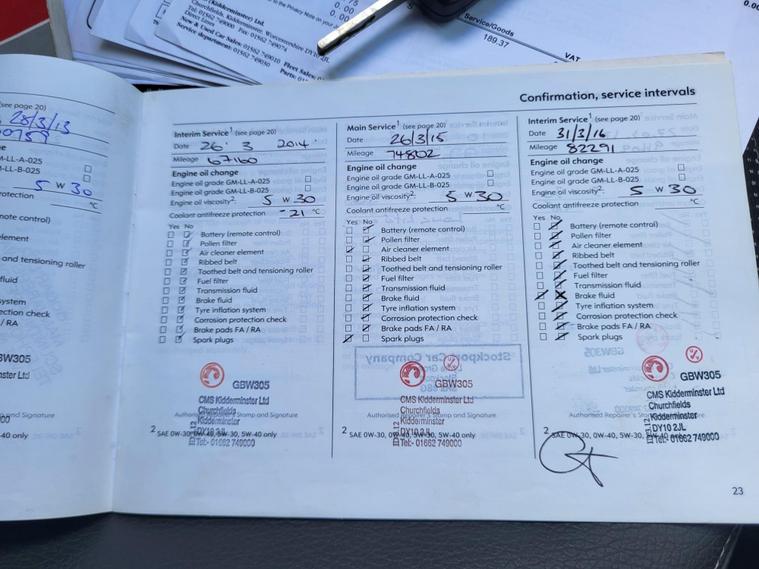 (Kidderminster) Ltd.
Churchfields, Kidderminster, Worcestershire DY10 2JL
Direct Lines
New & Used Car Sales: 01562
Service department: 01562
Fleet Sales:
Service/Goods
189.37
VAT
0.00
Confirmation, service intervals
(see page 20)
28/3/13
M-LL-A-025
M-LL-B-025
5 W 30
rotection °C
mote control)
element
and tensioning roller
fluid
system
tection check
/ RA
BW305
nster Ltd
and Signature
-40 only
Interim Service¹ (see page 20)
Date 26 3 2014
Mileage 67160
Engine oil change
Engine oil grade GM-LL-A-025
Engine oil grade GM-LL-B-025
Engine oil viscosity². 5 W 30
Coolant antifreeze protection -21 °C
Yes No
Battery (remote control)
Pollen filter
Air cleaner element
Ribbed belt
Toothed belt and tensioning roller
Fuel filter
Transmission fluid
Brake fluid
Tyre inflation system
Corrosion protection check
Brake pads FA / RA
Spark plugs
GBW305
CMS Kidderminster Ltd
Churchfields
Kidderminster
DY10 2JL
Tel:- 01562 749000
Authorised Repairer's Stamp and Signature
2 SAE 0W-30, 0W-40, 5W-30, 5W-40 only
Main Service¹ (see page 20)
Date 26/3/15
Mileage 74802
Engine oil change
Engine oil grade GM-LL-A-025
Engine oil grade GM-LL-B-025
Engine oil viscosity². 5 W 30
Coolant antifreeze protection °C
Yes No
Battery (remote control)
Pollen filter
Air cleaner element
Ribbed belt
Toothed belt and tensioning roller
Fuel filter
Transmission fluid
Brake fluid
Tyre inflation system
Corrosion protection check
Brake pads FA / RA
Spark plugs
GBW305
CMS Kidderminster Ltd
Churchfields
Kidderminster
DY10 2JL
Tel:- 01562 749000
Authorised Repairer's Stamp and Signature
2 SAE 0W-30, 0W-40, 5W-30, 5W-40 only
Interim Service¹ (see page 20)
Date 31/3/16
Mileage 82291
Engine oil change
Engine oil grade GM-LL-A-025
Engine oil grade GM-LL-B-025
Engine oil viscosity². 5 W 30
Coolant antifreeze protection °C
Yes No
Battery (remote control)
Pollen filter
Air cleaner element
Ribbed belt
Toothed belt and tensioning roller
Fuel filter
Transmission fluid
Brake fluid
Tyre inflation system
Corrosion protection check
Brake pads FA / RA
Spark plugs
GBW305
CMS Kidderminster Ltd
Churchfields
Kidderminster
DY10 2JL
Tel:- 01562 749000
Authorised Repairer's Stamp and Signature
2 SAE 0W-30, 0W-40, 5W-30, 5W-40 only
23